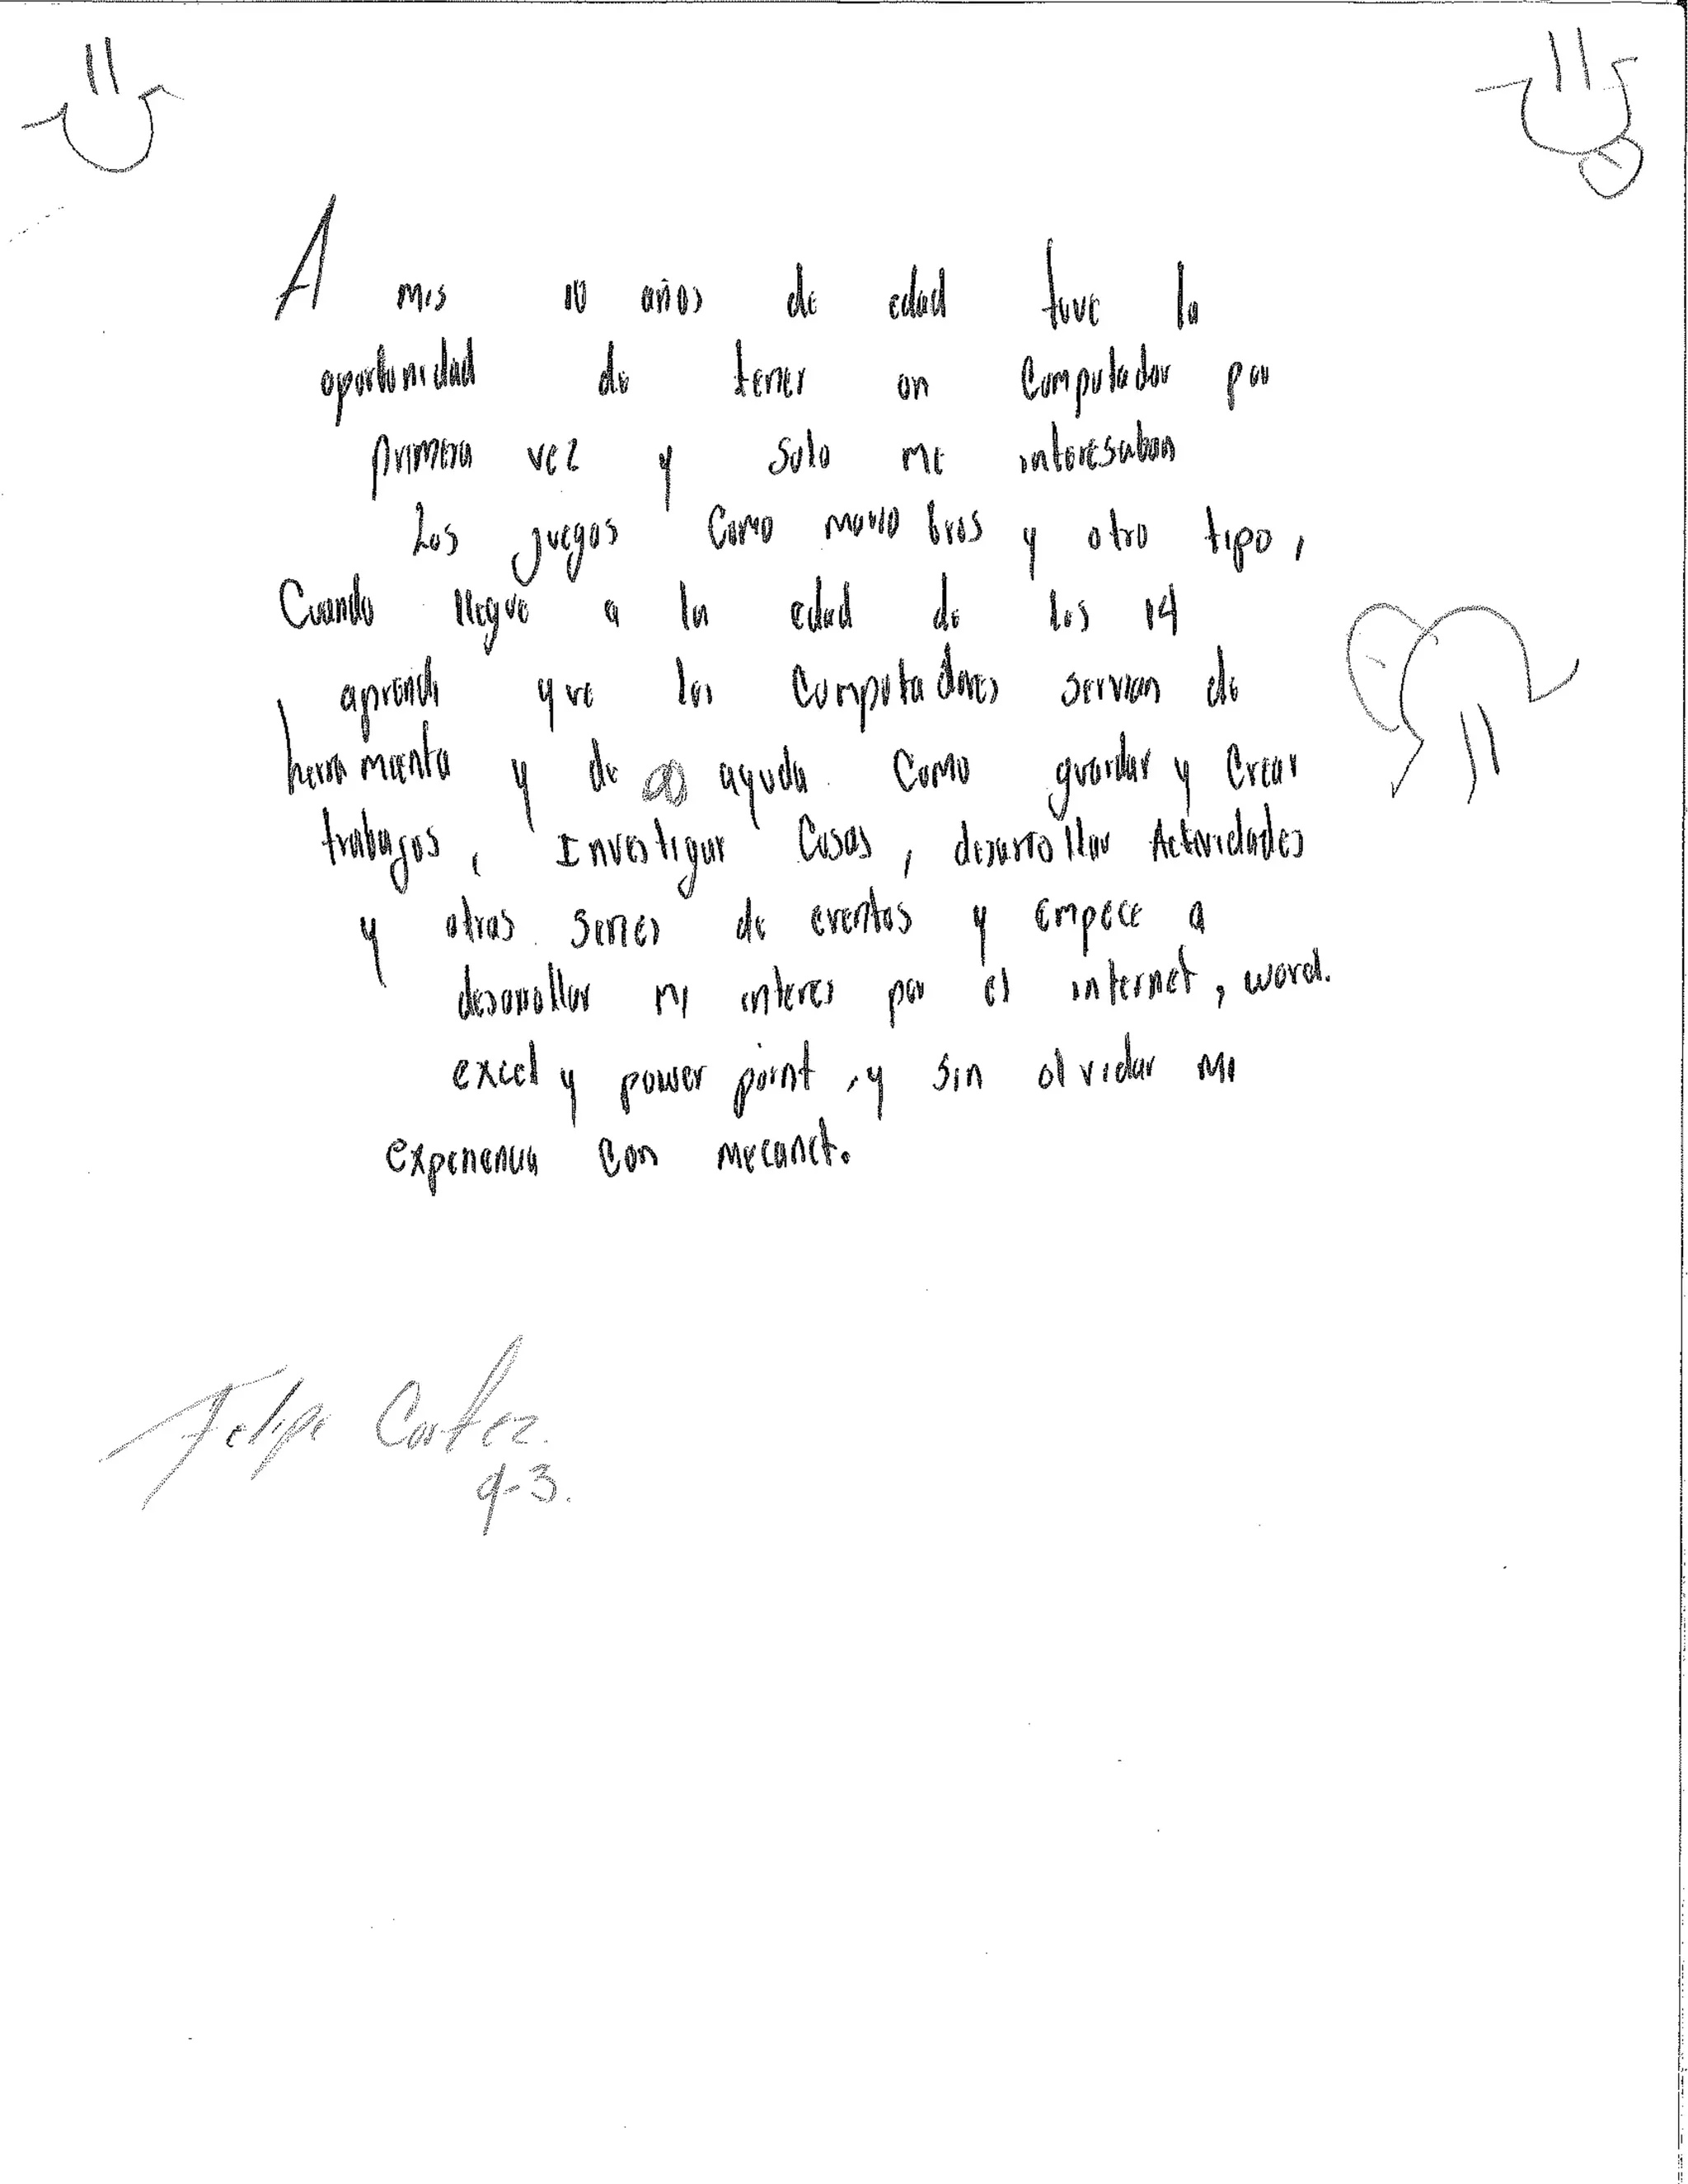 A mis 10 años de edad tuve la
oportunidad de tener un Computador por
primera vez y Solo me interesaban
Los juegos Como mario bros y otro tipo,
Cuando llegue a la edad de los 14
aprendi que los Computadores servian de
herramienta y de ayuda Como guardar y Crear
trabajos, Investigar Cosas, desarrollar Actividades
y otras series de eventos y empece a
desarrollar mi interes por el internet, word.
excel y power point, y sin olvidar mi
experiencia con mecanet.
Felipe Cortez.
9-3.